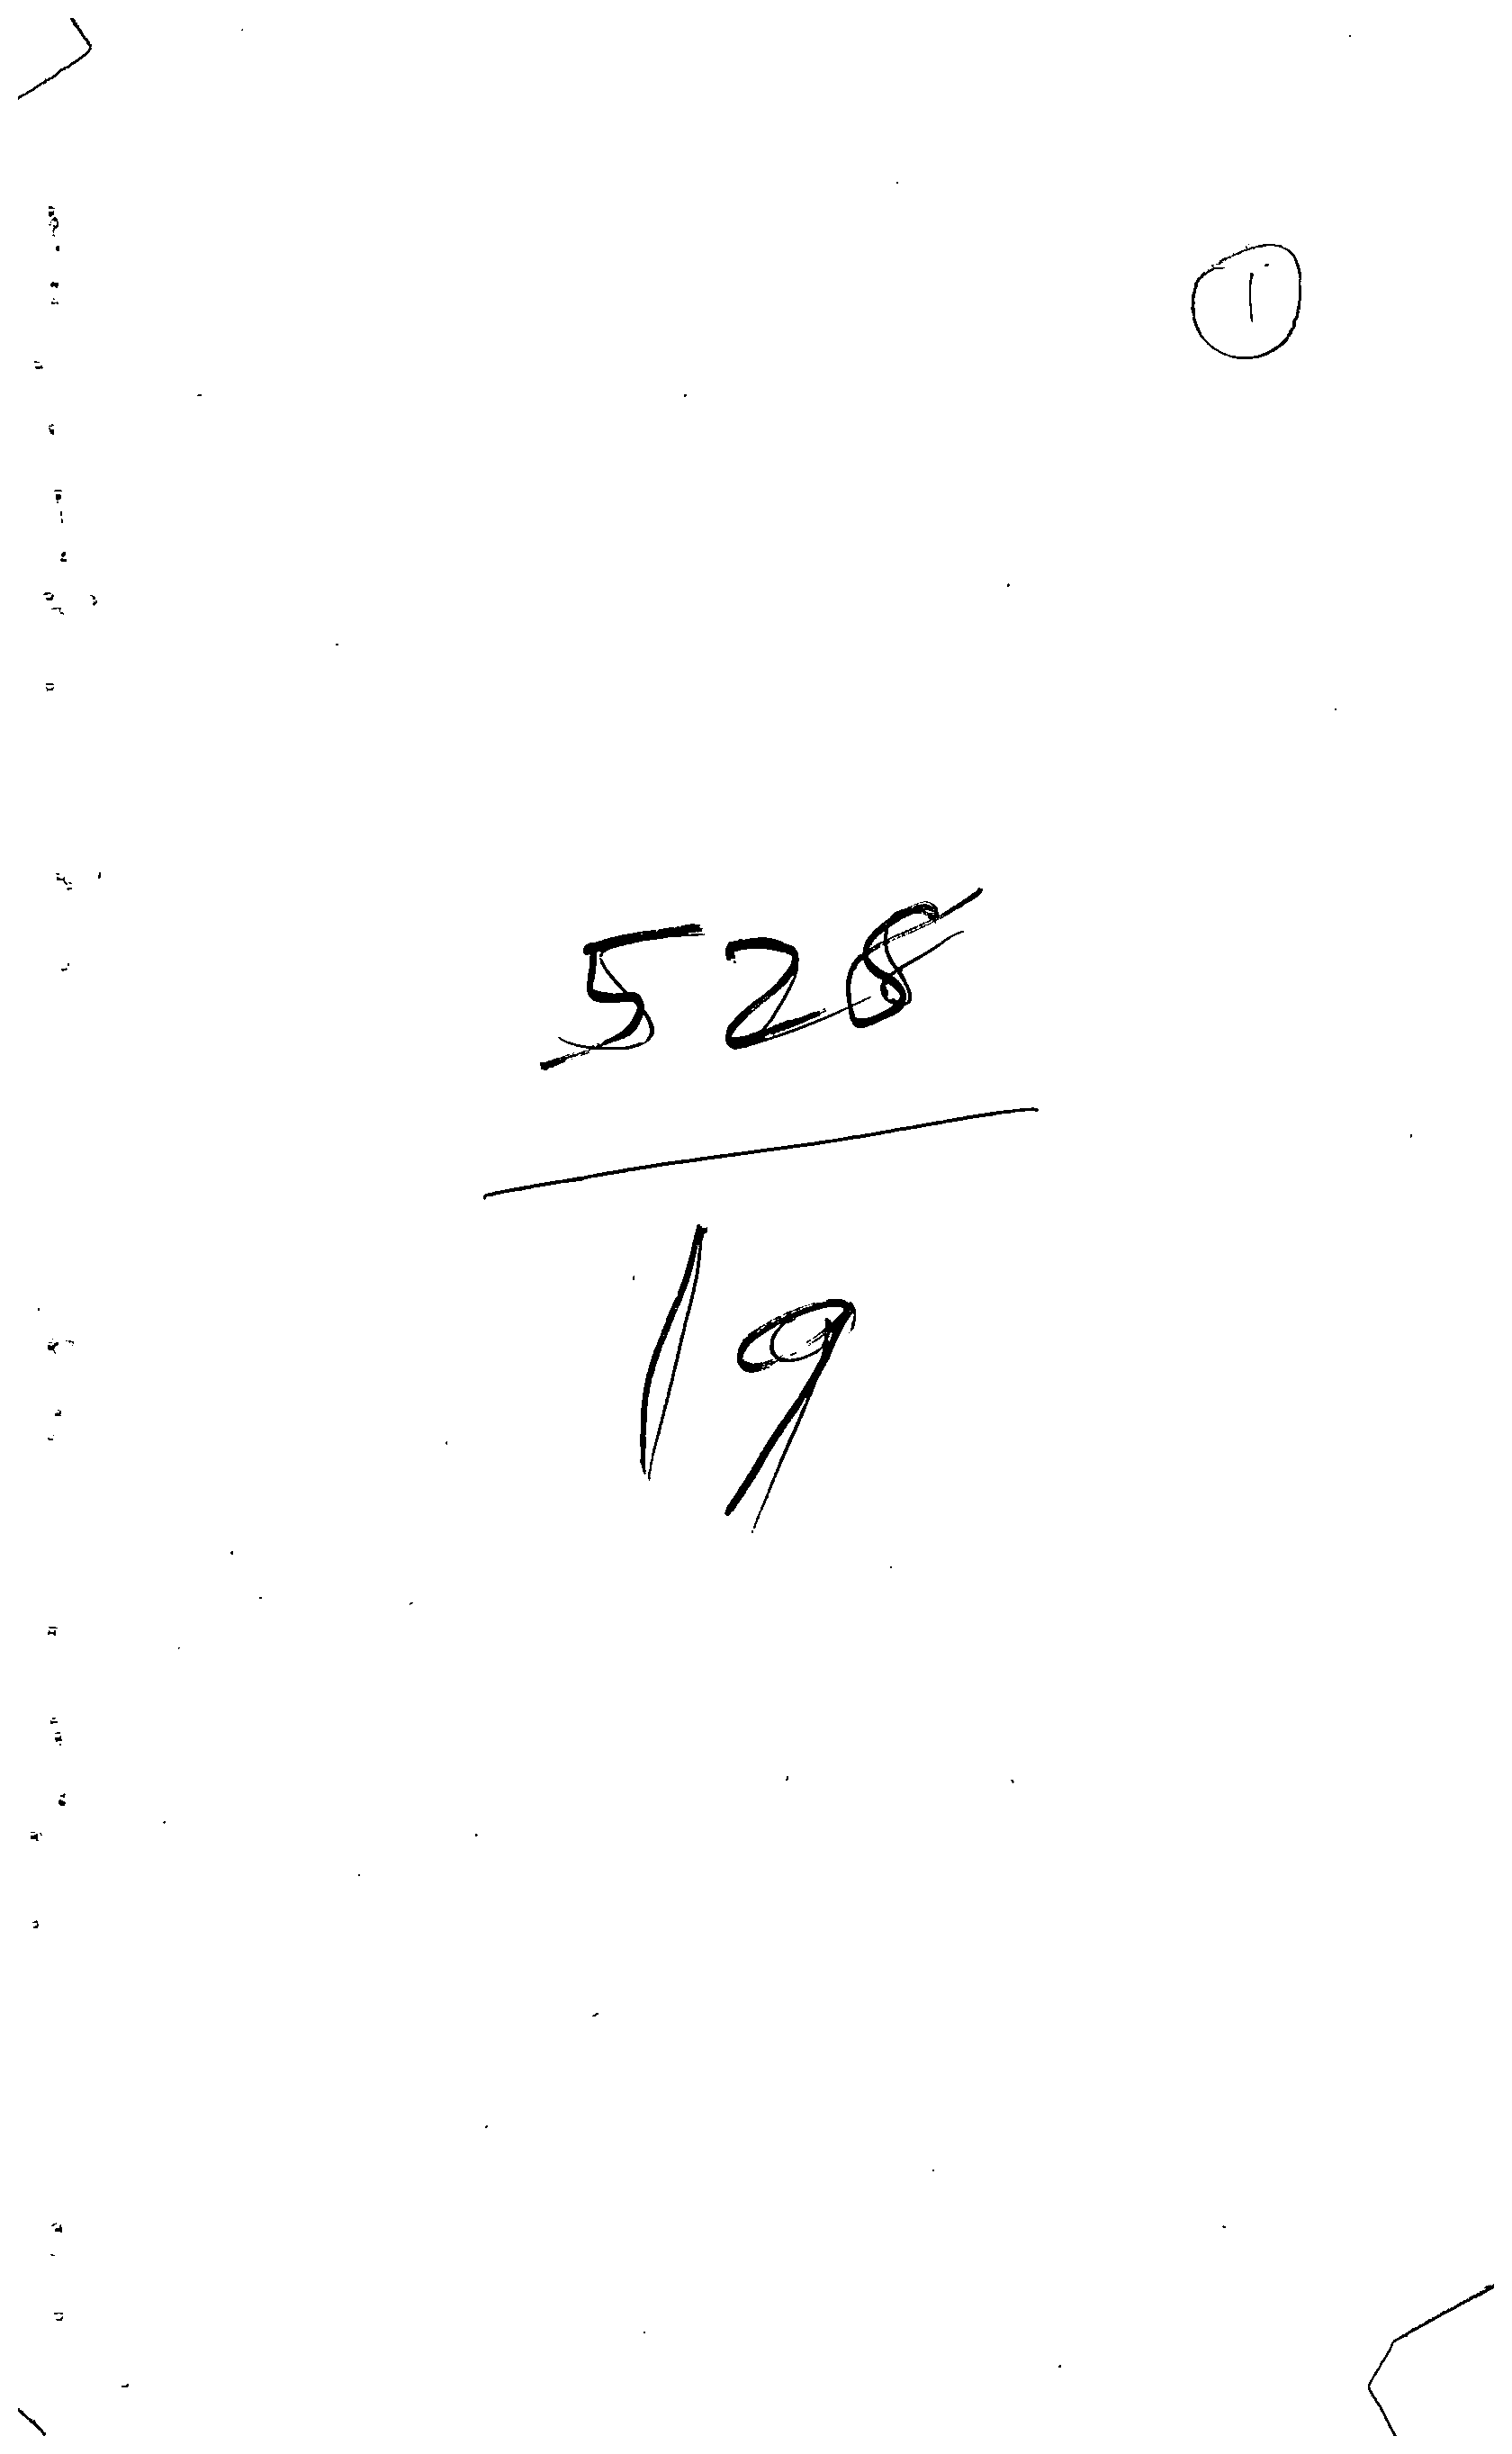 1
528
19